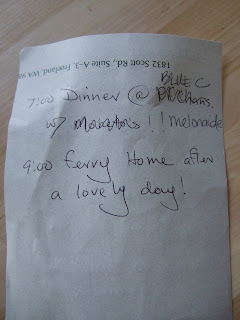 1832 Scott Rd., Suite A-3, Freeland, WA
BLUE C
7:00 Dinner @
w/ !! melonade
9:00 ferry Home after
a lovely day!